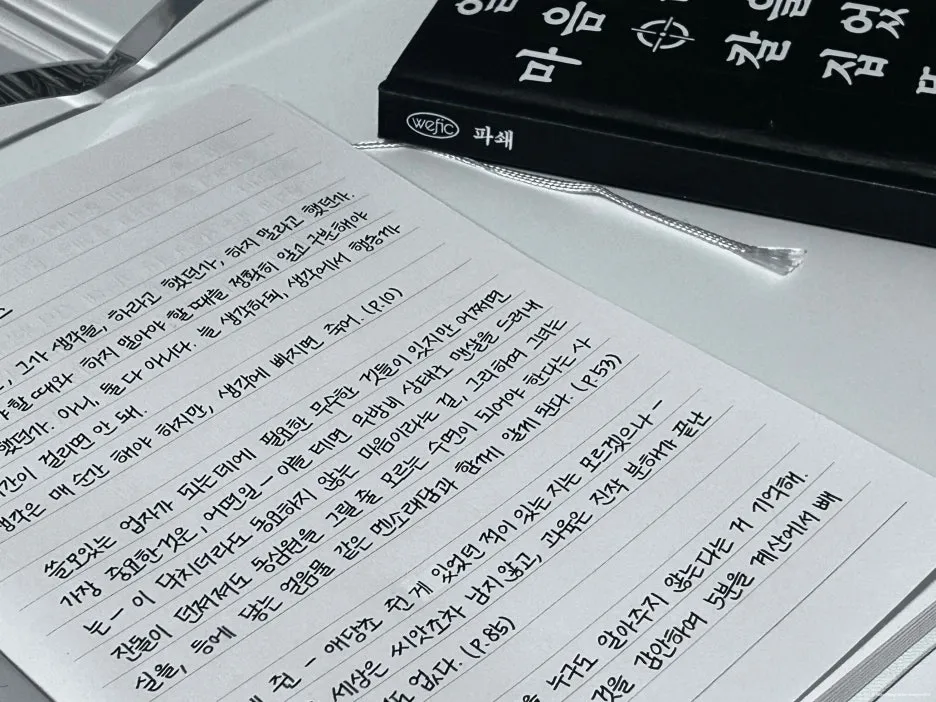 마음
을
칼
집
었
wefic 파쇄
그가 생각을, 하라고 했던가, 하지 말라고 했던가.
할 때와 하지 말아야 할 때를 정확히 알고 구분해야
했던가. 아니, 둘 다 아니다. 늘 생각하되, 생각에서 행동까
시간이 걸리면 안 돼.
생각은 매 순간 해야 하지만, 생각에 빠지면 죽어. (P.10)
쓸모있는 업자가 되는데에 필요한 무수한 것들이 있지만 어쩌면
가장 중요한 것은, 어떤일 - 이를 테면 무방비 상태로 맨살을 드러내
는 - 이 닥치더라도 동요하지 않는 마음이라는 걸, 그리하여 그녀는
잔돌이 던져져도 동심원을 그릴 줄 모르는 수면이 되어야 한다는 사
실을, 등에 닿는 얼음물 같은 멘소래담과 함께 알게 된다. (P.53)
쥔 - 애당초 쥔 게 있었던 적이 있는 지는 모르겠으나 -
세상은 씨앗조차 남지 않고, 과육은 진작 분해가 끝난
도 없다. (P.85)
을 누구도 알아주지 않는다는 거 기억해.
것을 감안하여 5분을 계산에서 빼